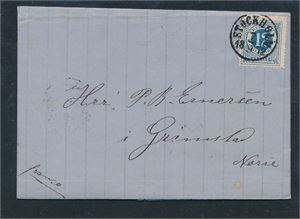 STOCKHOLM
12
Herr P. B. Emersén
i Grimsta
Norie
franco